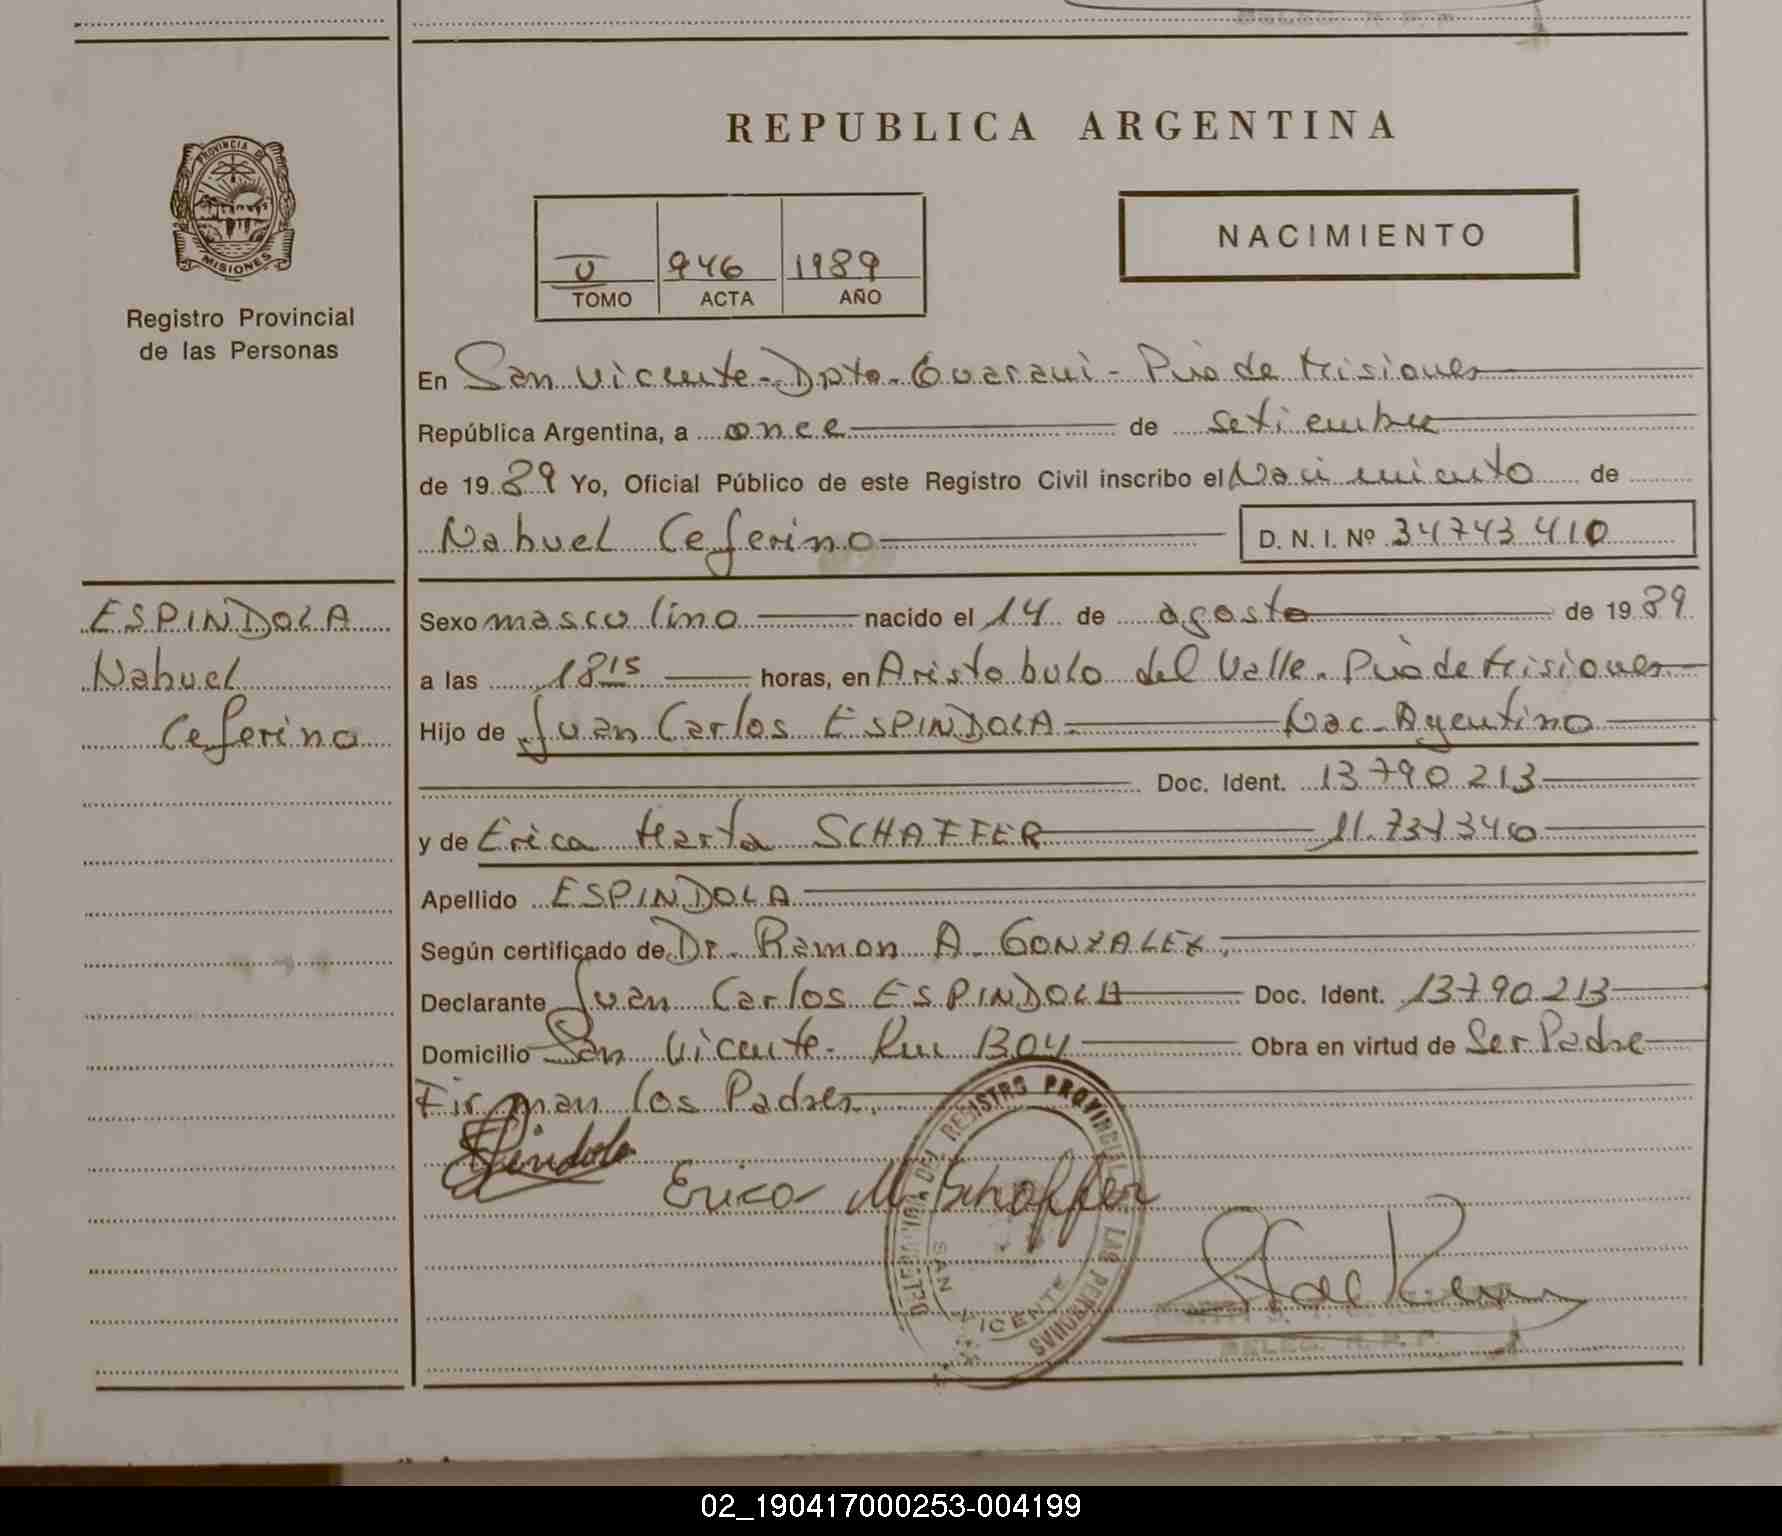 REPUBLICA ARGENTINA
PROVINCIA DE
MISIONES
Registro Provincial
de las Personas
V 946 1989
TOMO ACTA AÑO
NACIMIENTO
En San Vicente - Dpto. Guaraní - Pcia de Misiones
República Argentina, a once de setiembre
de 1989 Yo, Oficial Público de este Registro Civil inscribo el Nacimiento de
Nahuel Ceferino D. N. I. Nº 34743410
ESPINDOLA
Nahuel
Ceferino
Sexo masculino nacido el 14 de agosto de 1989
a las 18 15 horas, en Aristobulo del Valle. Pcia de Misiones
Hijo de Juan Carlos ESPINDOLA - Nac. Argentino
Doc. Ident. 13790213
y de Erica Marta SCHAFFER 11.731340
Apellido ESPINDOLA
Según certificado de Dr. Ramon A. GONZALEZ.
Declarante Juan Carlos ESPINDOLA Doc. Ident. 13790213
Domicilio San Vicente - Km 1304 Obra en virtud de Ser Padre
Firman los Padres.
Espindola
Erica M Schaffer
REGISTRO PROVINCIAL
LAS PERSONAS
SAN VICENTE
DELEG. R. P. P.
02_190417000253-004199